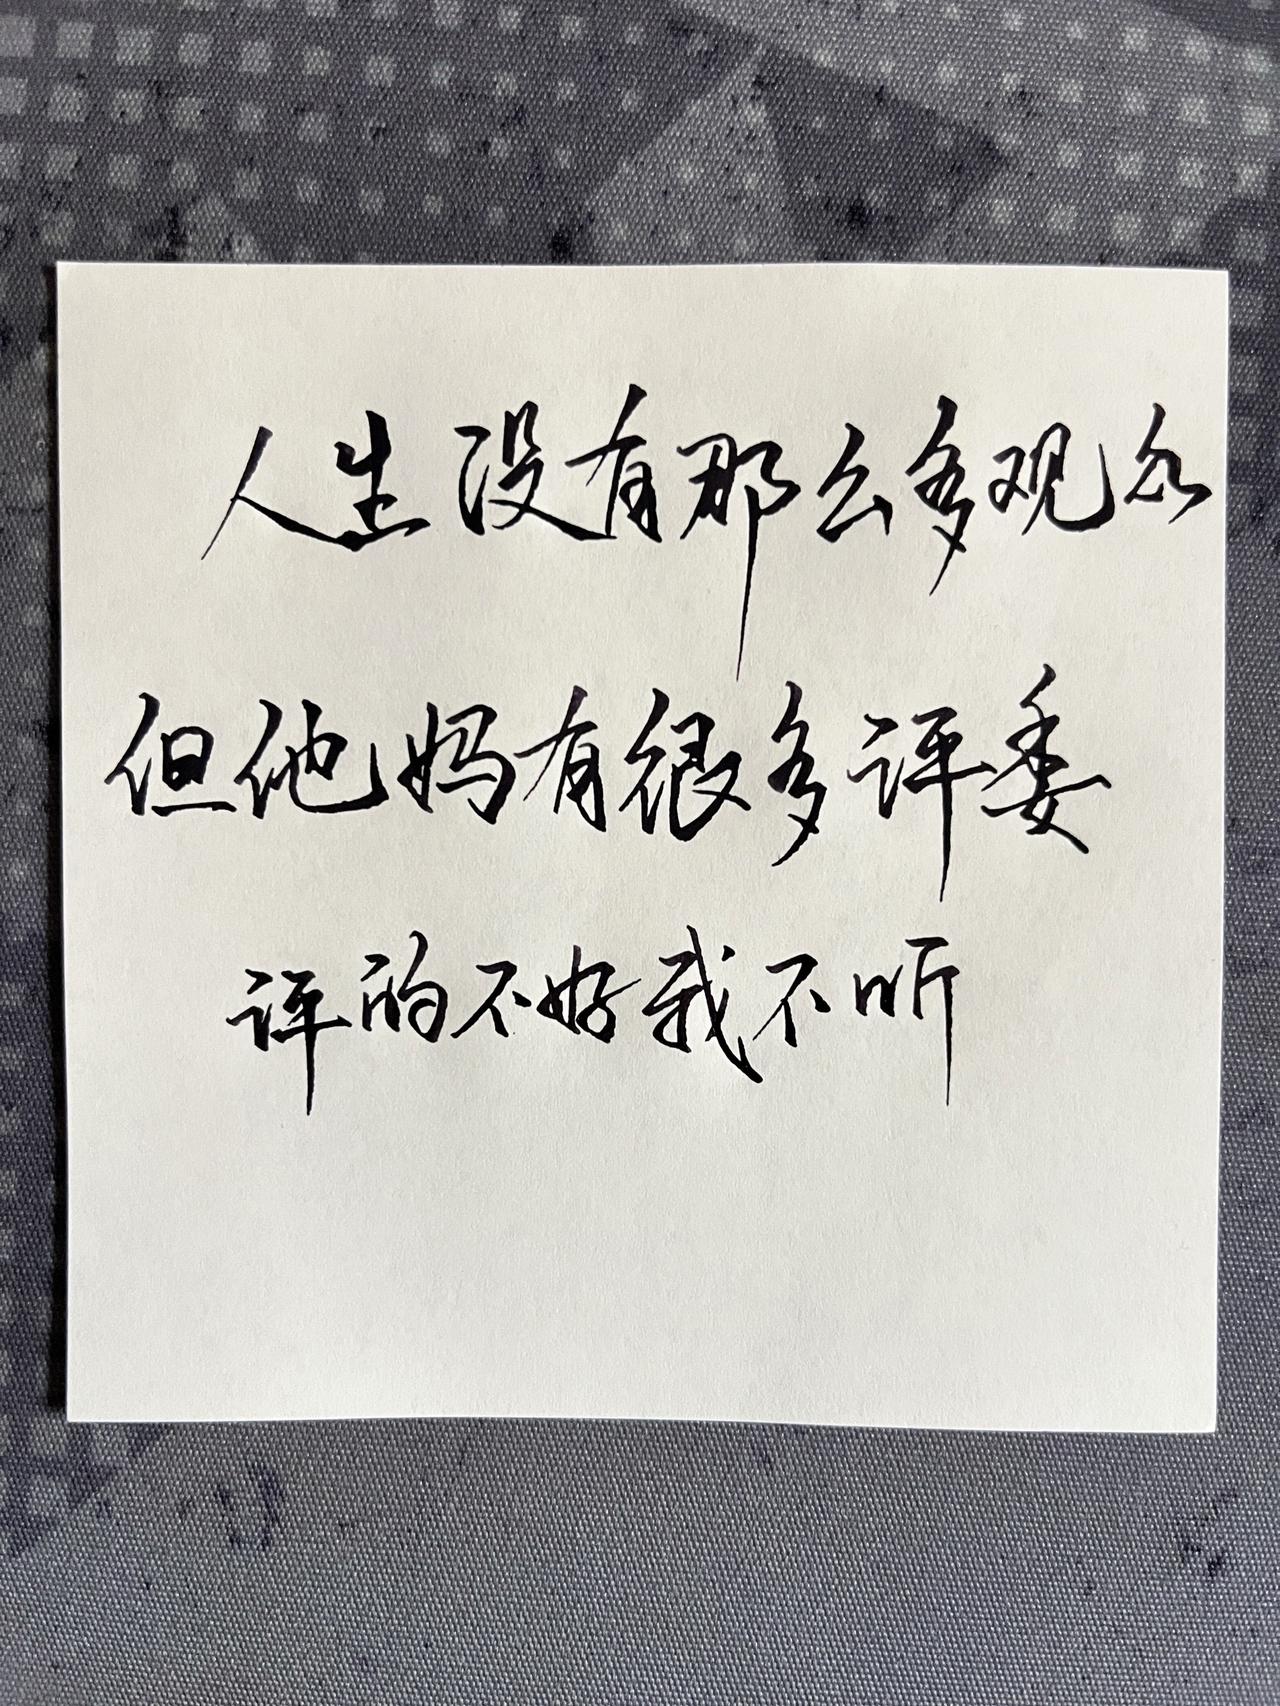 人生没有那么多观众
但他妈有很多评委
评的不好我不听